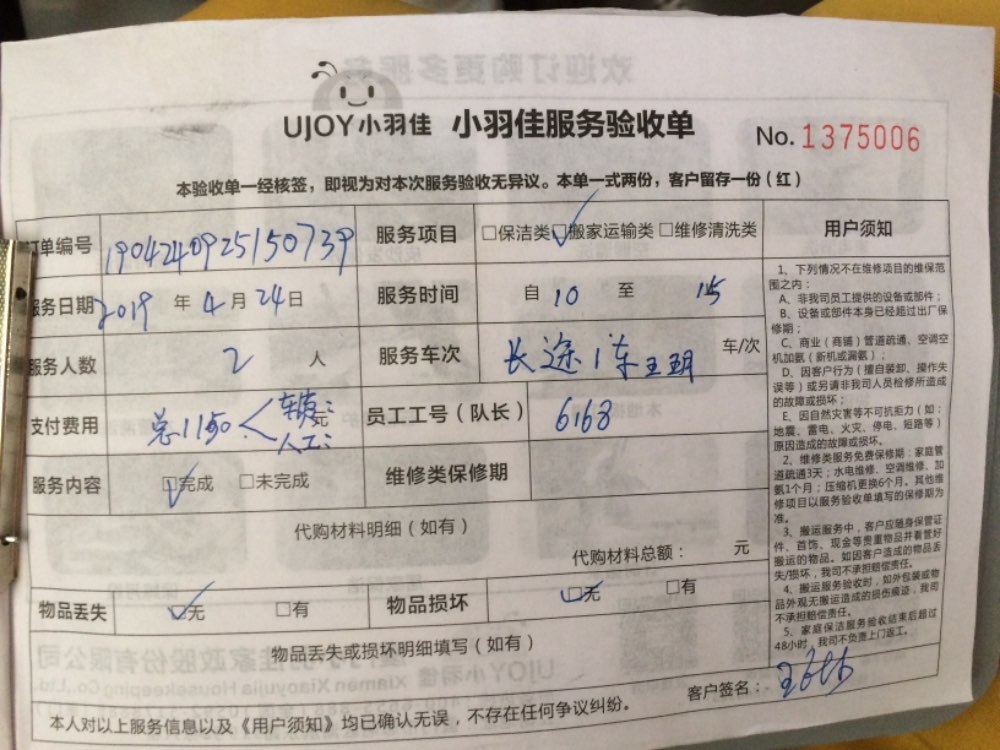 UJOY小羽佳 小羽佳服务验收单
No. 1375006
本验收单一经核签，即视为对本次服务验收无异议。本单一式两份，客户留存一份（红）
订单编号 190424092515150739 服务项目 □保洁类 ☑搬家运输类 □维修清洗类
服务日期 2019 年 4 月 24 日 服务时间 自 10 至 15
服务人数 2 人 服务车次 长途1车王玥 车/次
支付费用 总1150 车辆： 元 人工： 员工工号（队长） 6168
服务内容 ☑完成 □未完成 维修类保修期
代购材料明细（如有）
代购材料总额： 元
物品丢失 ☑无 □有 物品损坏 ☑无 □有
物品丢失或损坏明细填写（如有）
客户签名：
本人对以上服务信息以及《用户须知》均已确认无误，不存在任何争议纠纷。
用户须知
1、下列情况不在维修项目的维保范
围之内：
A、非我司员工提供的设备或部件；
B、设备或部件本身已经超过出厂保
修期；
C、商业（商铺）管道疏通、空调空
机加氨（新机或漏氨）；
D、因客户行为（擅自装卸、操作失
误等）或另请非我司人员检修所造成
的故障或损坏；
E、因自然灾害等不可抗拒力（如：
地震、雷电、火灾、停电、短路等）
原因造成的故障或损坏。
2、维修类服务免费保修期：家庭管
道疏通3天；水电维修、空调维修、加
氨1个月；压缩机更换6个月。其他维
修项目以服务验收单填写的保修期为
准。
3、搬运服务中，客户应随身保管证
件、首饰、现金等贵重物品并看管好
搬运的物品。如因客户造成的物品丢
失/损坏，我司不承担赔偿责任。
4、搬运服务验收时，如外包装或物
品外观无搬运造成的损伤痕迹，我司
不承担赔偿责任。
5、家庭保洁服务验收结束后超过
48小时，我司不负责上门返工。